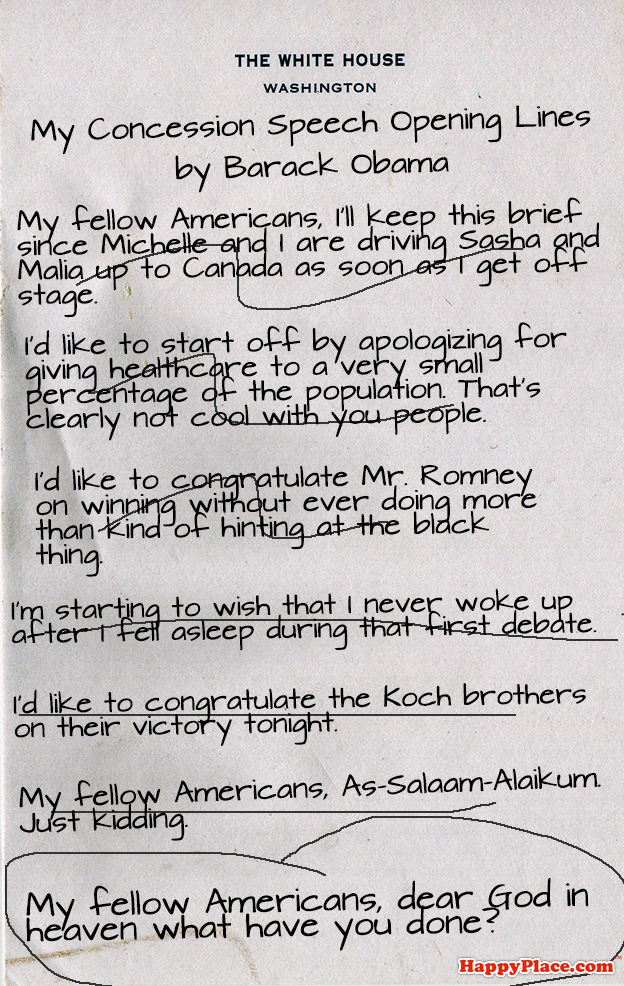 THE WHITE HOUSE
WASHINGTON
My Concession Speech Opening Lines
by Barack Obama
My fellow Americans, I'll keep this brief
since Michelle and I are driving Sasha and
Malia up to Canada as soon as I get off
stage.
I'd like to start off by apologizing for
giving healthcare to a very small
percentage of the population. That's
clearly not cool with you people.
I'd like to congratulate Mr. Romney
on winning without ever doing more
than kind of hinting at the black
thing.
I'm starting to wish that I never woke up
after I fell asleep during that first debate.
I'd like to congratulate the Koch brothers
on their victory tonight.
My fellow Americans, As-Salaam-Alaikum.
Just kidding.
My fellow Americans, dear God in
heaven what have you done?
HappyPlace.com